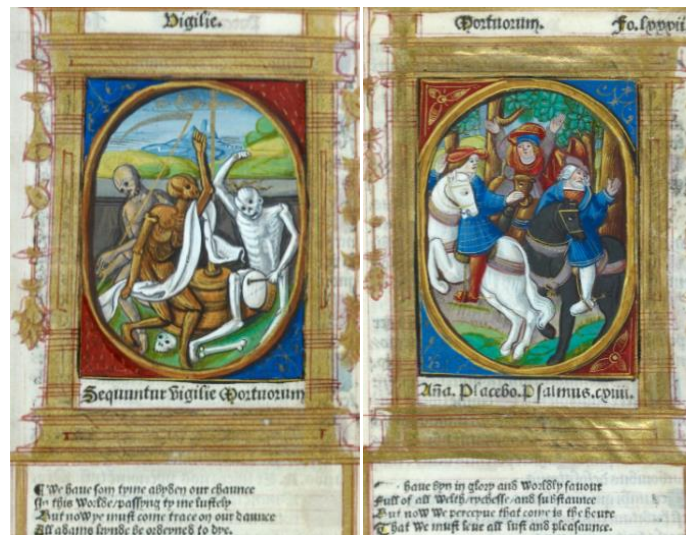 Vigilie.
Sequuntur Vigilie Mortuorum
¶ We haue som tyme abyden our chaunce
In this Worlde/passyng tyme lustely
But now ye must come trace on our daunce
All adams kynde be ordeyned to dye.
Mortuorum. Fo.lxxvii
Aña. Placebo. Psalmus.cxiiii.
haue byn in glory and Worldly fauour
Full of all Welth/rychesse/and substaunce
But now We perceyue that come is the houre
That We must leue all lust and pleasaunce.